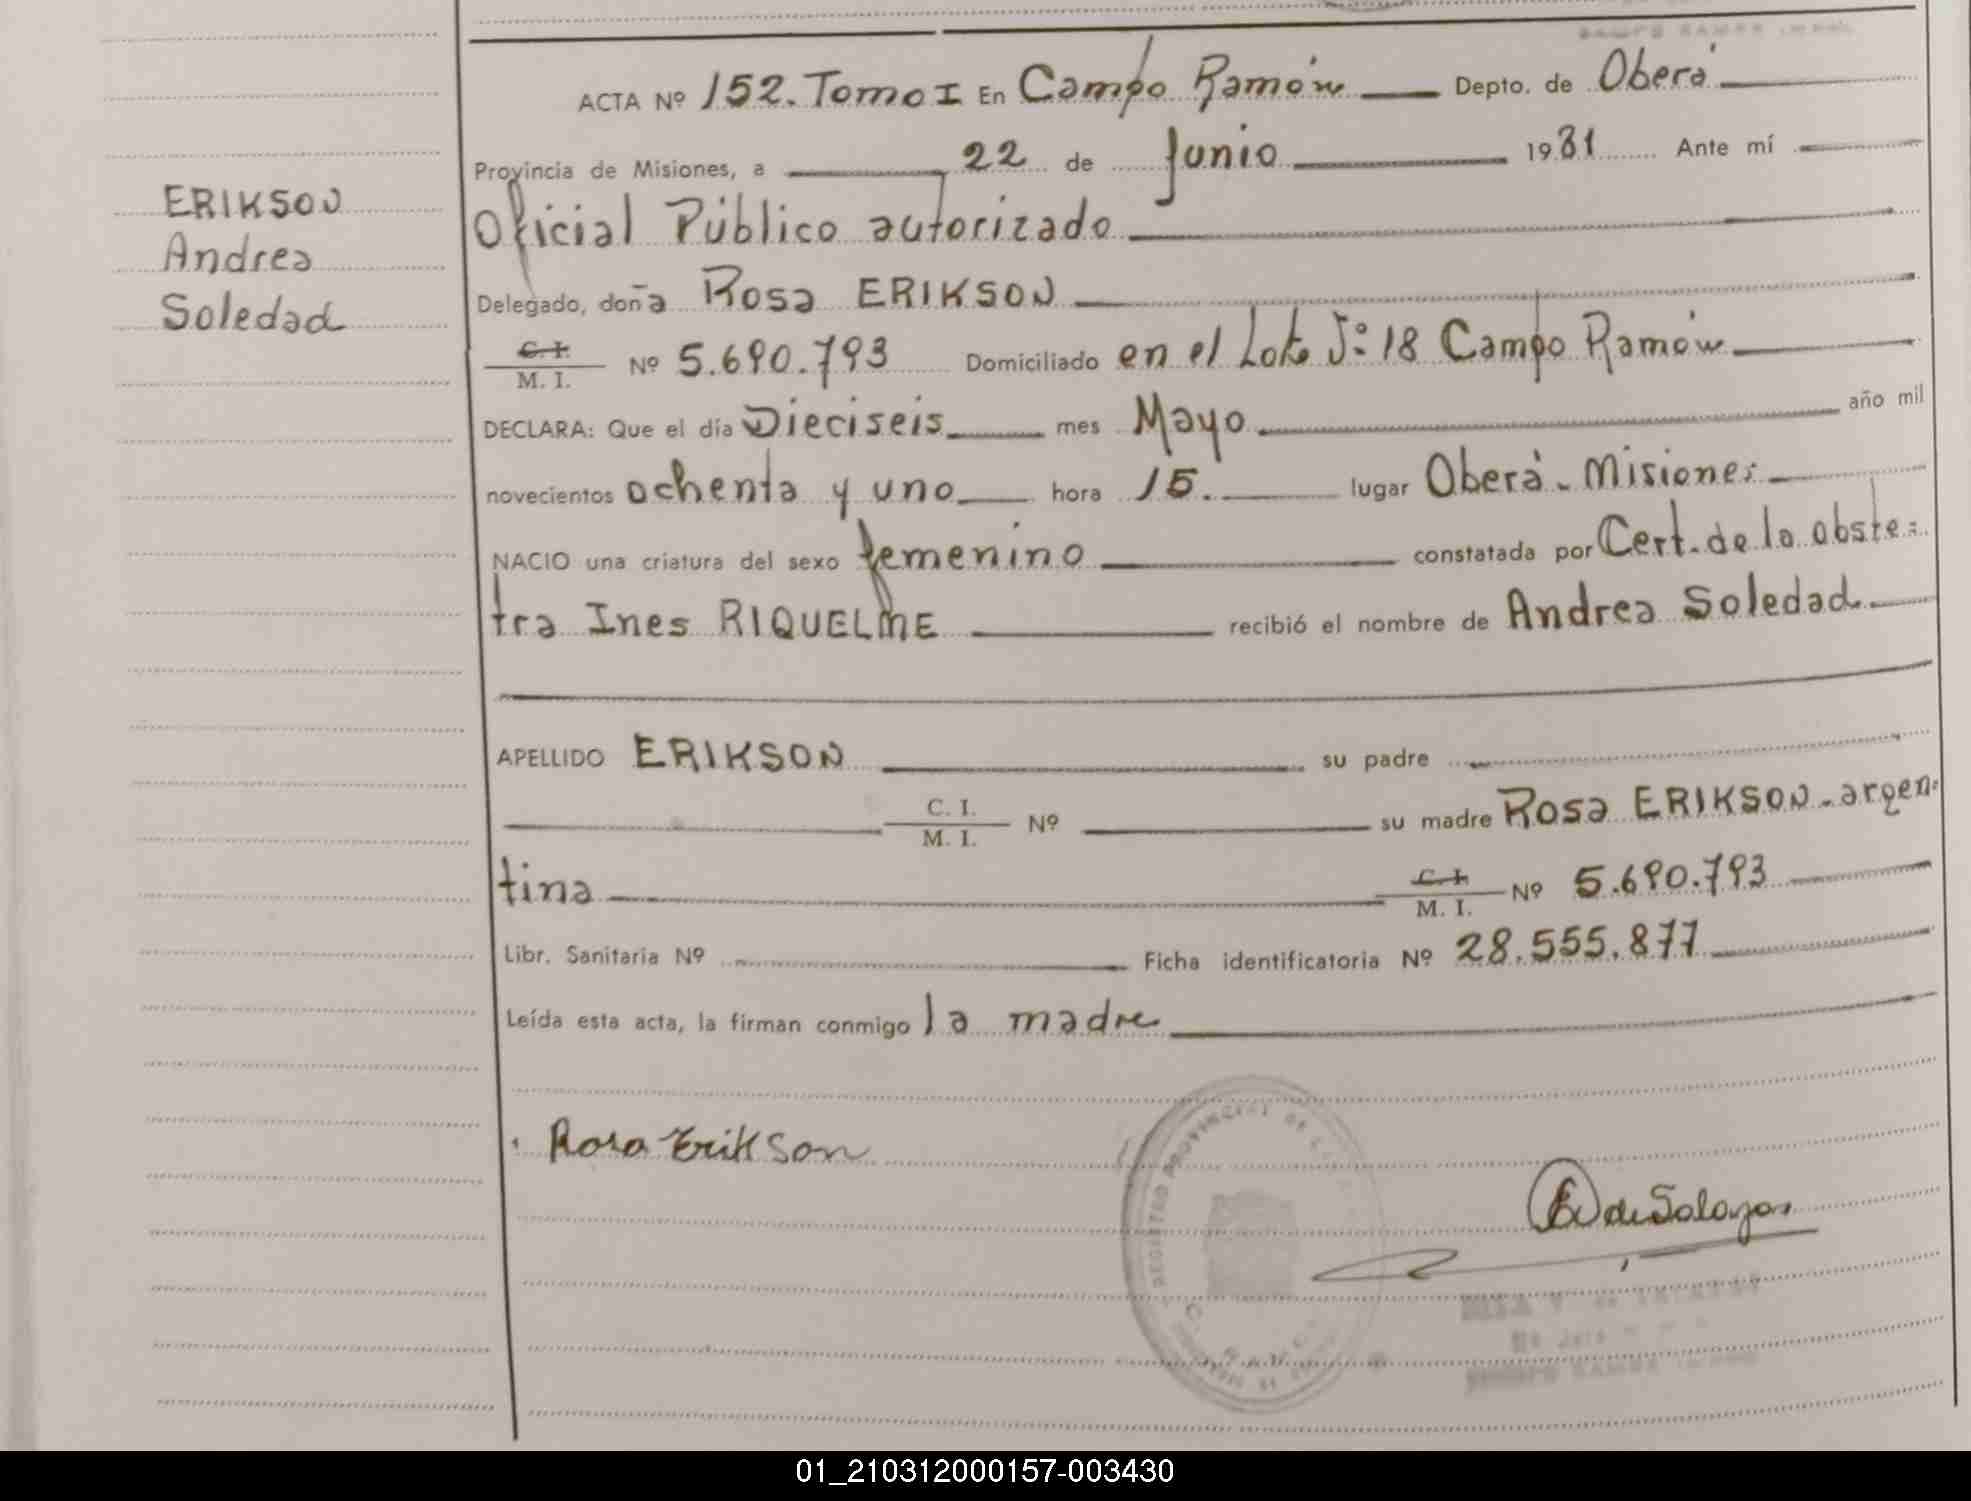 ERIKSON
Andrea
Soledad
ACTA Nº 152. Tomo I En Campo Ramón Depto. de Oberá
Provincia de Misiones, a 22 de Junio 1981 Ante mí
Oficial Público autorizado
Delegado, doña Rosa ERIKSON
C. I. / M. I. Nº 5.690.793 Domiciliado en el Lote Nº 18 Campo Ramón
DECLARA: Que el día Dieciseis mes Mayo año mil
novecientos ochenta y uno hora 15. lugar Oberá - Misiones
NACIO una criatura del sexo femenino constatada por Cert. de la obste=
tra Ines RIQUELME recibió el nombre de Andrea Soledad
APELLIDO ERIKSON su padre
C. I. / M. I. Nº su madre Rosa ERIKSON - argen=
tina C. I. / M. I. Nº 5.690.793
Libr. Sanitaria Nº Ficha identificatoria Nº 28.555.877
Leída esta acta, la firman conmigo la madre
Rosa Erikson
de Salazar
REGISTRO PROVINCIAL DE
01_210312000157-003430